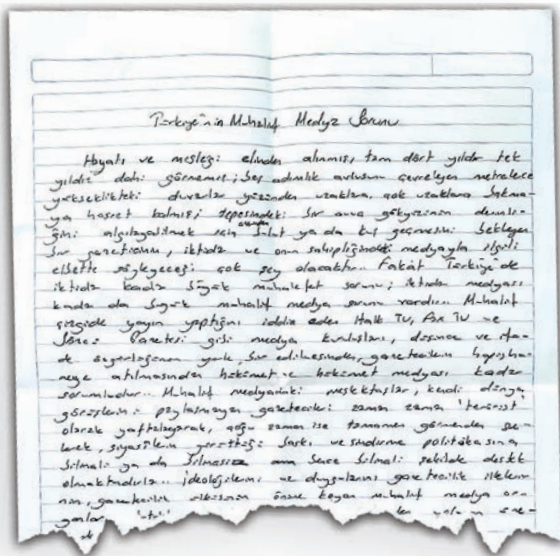 Türkiye'nin Muhalif Medya Sorunu
Hayatı ve mesleği elinden alınmış, tam dört yıldır tek
yıldız dahi görmemiş; beş adımlık avlusun çevreleyen metrelerce
yükseklikteki duvarlar yüzünden uzaklara, çok uzaklara bakma-
ya hasret kalmış; tepesindeki bir avuç gökyüzünün derinli-
ğini algılayabilmek için üzerinden bulut ya da kuş geçmesini bekleyen
bir gazetecinin, iktidar ve onun sahipliğindeki medyayla ilgili
elbette söyleyeceği çok şey olacaktır.. Fakat Türkiye'de
iktidar kadar büyük muhalefet sorunu; iktidar medyası
kadar da büyük muhalif medya sorunu vardır... Muhalif
çizgide yayın yaptığını iddia eden Halk TV, Fox TV ve
Sözcü Gazetesi gibi medya kuruluşları, düşünce ve ifa-
de özgürlüğünün yerle bir edilmesinden, gazetecilerin hapisha-
neye atılmasından hükümet ve hükümet medyası kadar
sorumludur.. Muhalif medyadaki meslektaşlar, kendi dünya
görüşlerini paylaşmayan gazetecileri zaman zaman 'terörist'
olarak yaftalayarak, çoğu zaman ise tamamen görmezden ge-
lerek, siyasilerin yürüttüğü baskı ve sindirme politikasına
bilmeli ya da bilmasız ama bence bilmeli şekilde destek
olmaktadırlar. İdeolojilerini ve duygularını gazetecilik ilkeleri-
nin, gazetecilik etkisinin önüne koyan muhalif medya or-
ganları